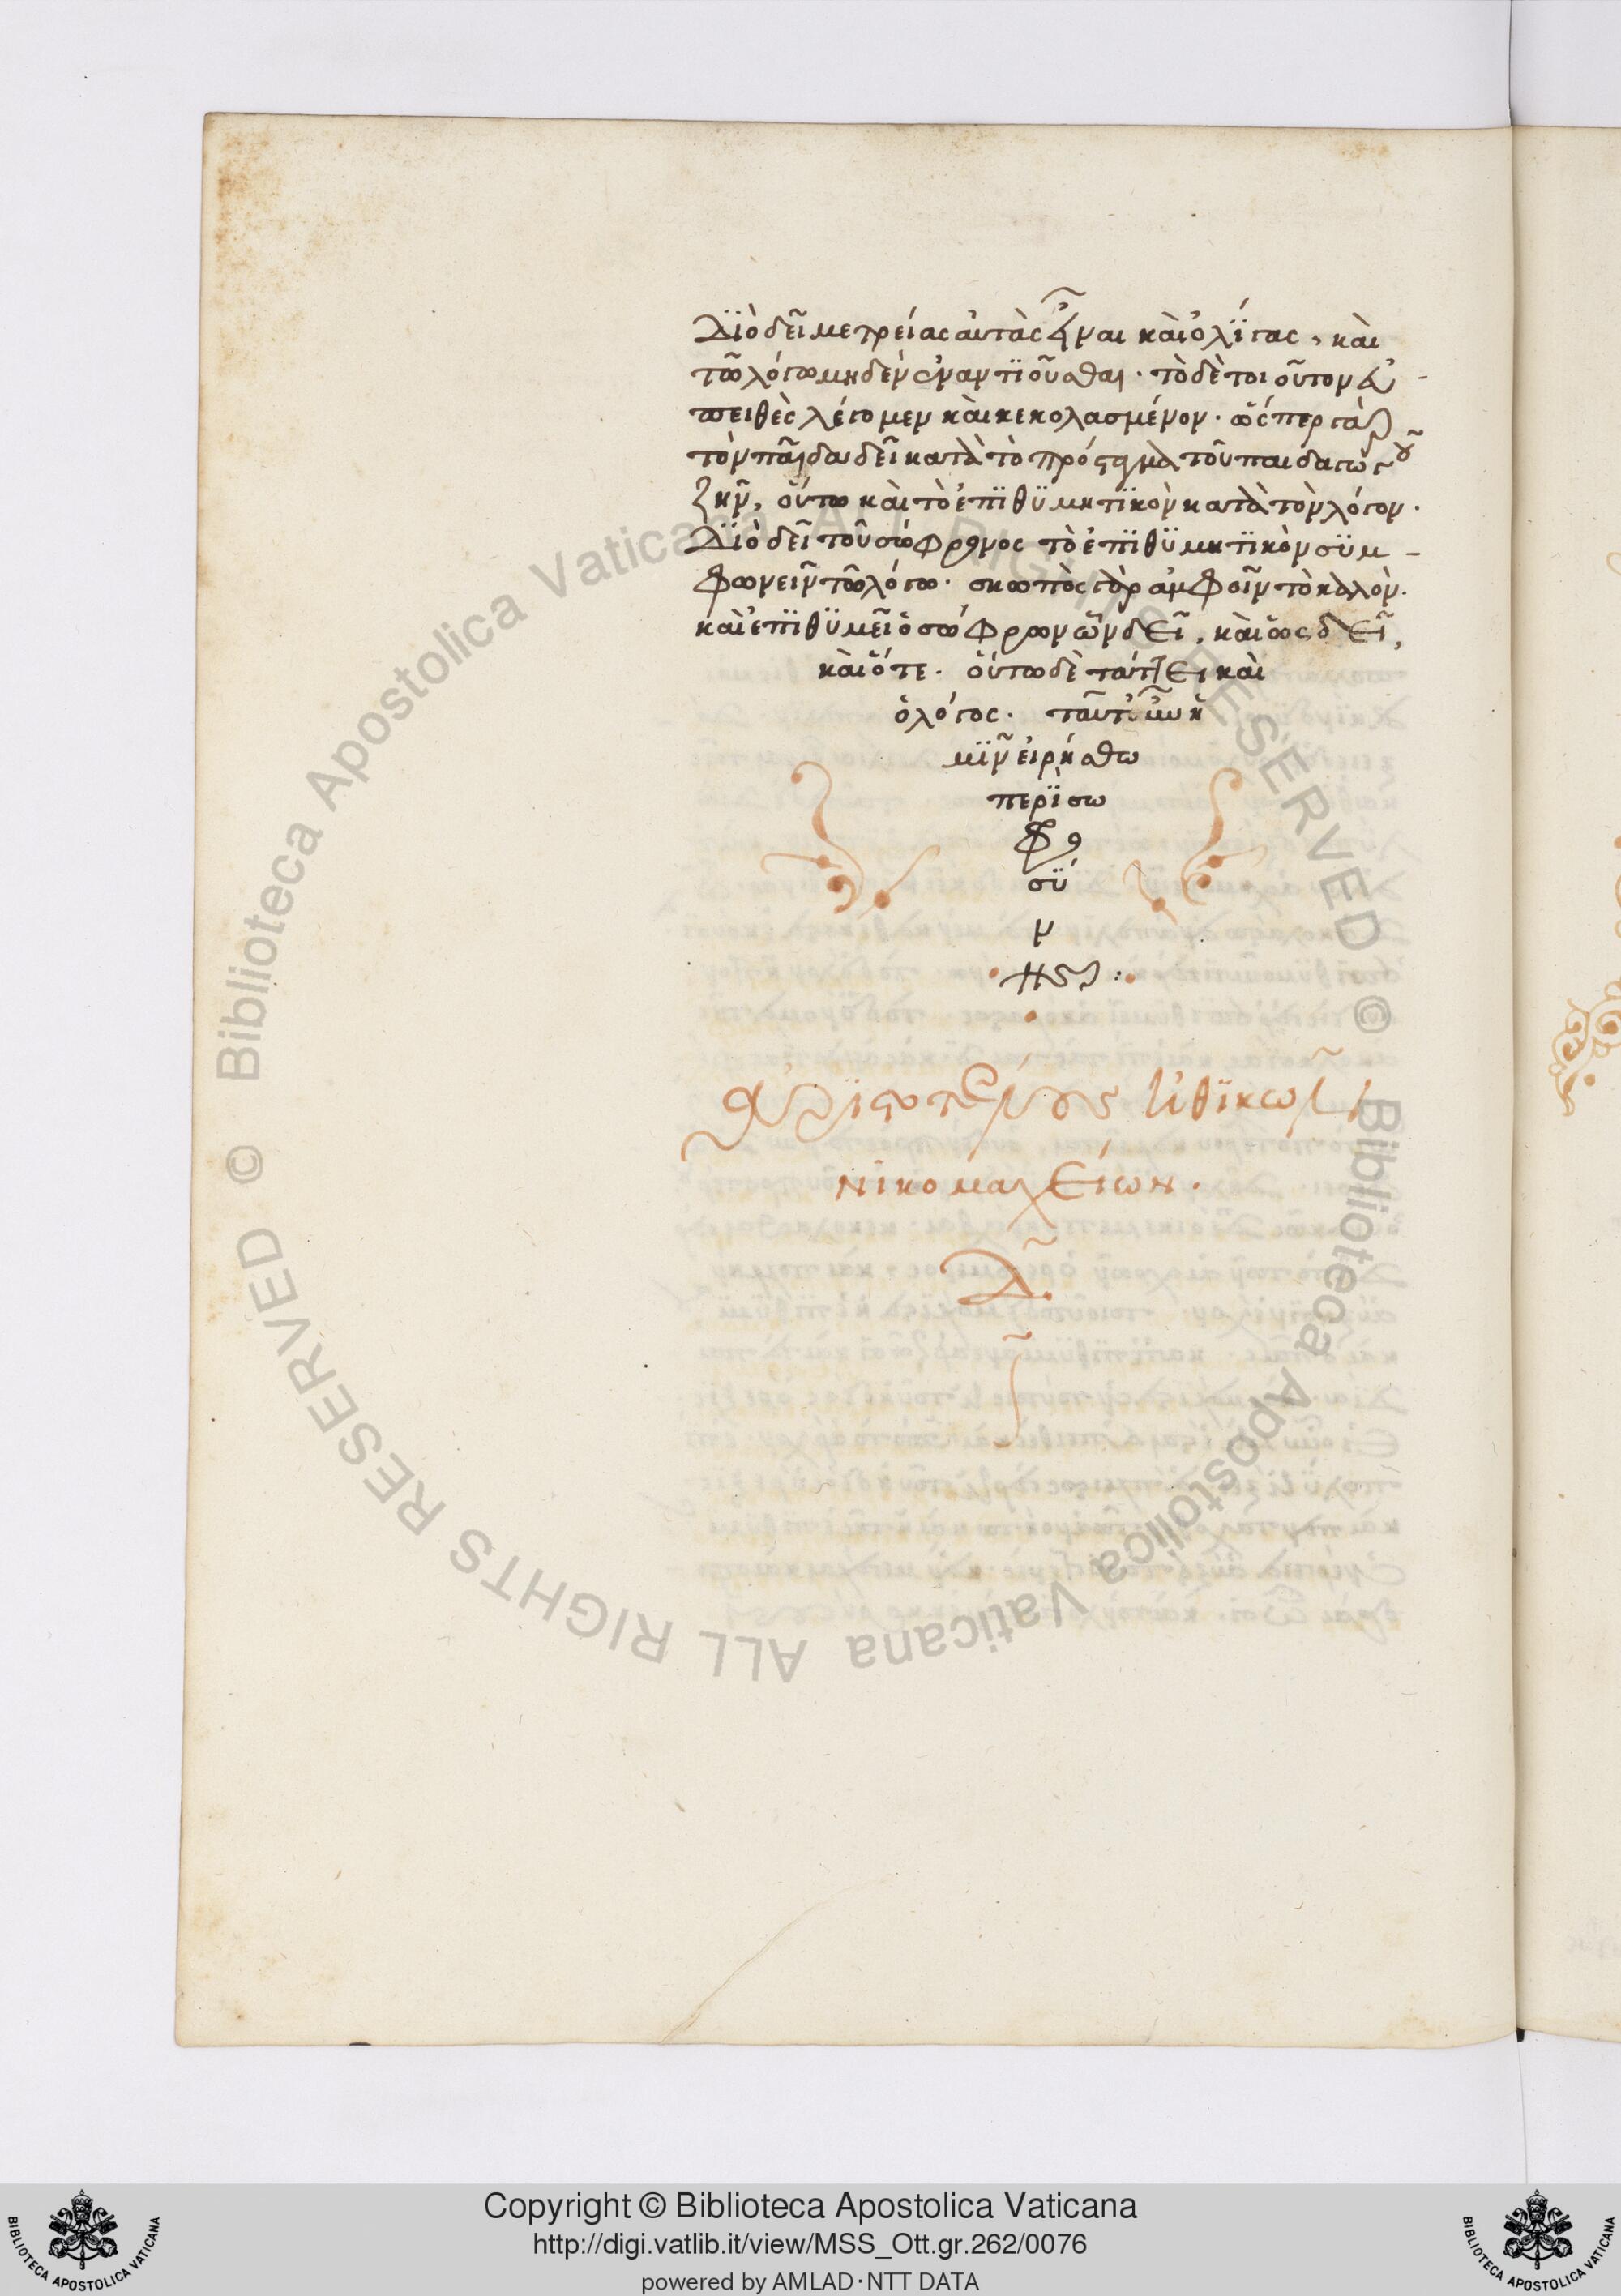 Διὸ δεῖ μετρείας αὐτὰς εἶναι καὶ ὀλίγας, καὶ
τῶ λόγω μηδὲν ἐναντιοῦσθαι· τὸ δὲ τοιοῦτον εὐ-
πειθὲς λέγομεν καὶ κεκολασμένον· ὥσπερ γὰρ
τὸν παῖδα δεῖ κατὰ τὸ πρόσταγμα τοῦ παιδαγωγοῦ
ζῆν, οὕτω καὶ τὸ ἐπιθυμητικὸν κατὰ τὸν λόγον·
Διὸ δεῖ τοῦ σώφρονος τὸ ἐπιθυμητικὸν συμ-
φωνεῖν τῶ λόγω· σκωπὸς γὰρ ἀμφοῖν τὸ καλόν·
καὶ ἐπιθυμεῖ ὁ σώφρων ὧν δεῖ, καὶ ὡς δεῖ,
καὶ ὅτε· οὕτω δὲ τάττει καὶ
ὁ λόγος· ταῦτ' οὖν ἡ
μῖν εἰρήσθω
περὶ σω
φρο
σύ
ν
ης :
ἀριστοτέλους ἠθικῶν
νικομαχείων.
Δ.
Copyright © Biblioteca Apostolica Vaticana
http://digi.vatlib.it/view/MSS_Ott.gr.262/0076
powered by AMLAD·NTT DATA
BIBLIOTECA APOSTOLICA VATICANA
BIBLIOTECA APOSTOLICA VATICANA
© Biblioteca Apostolica Vaticana ALL RIGHTS RESERVED
© Biblioteca Apostolica Vaticana ALL RIGHTS RESERVED